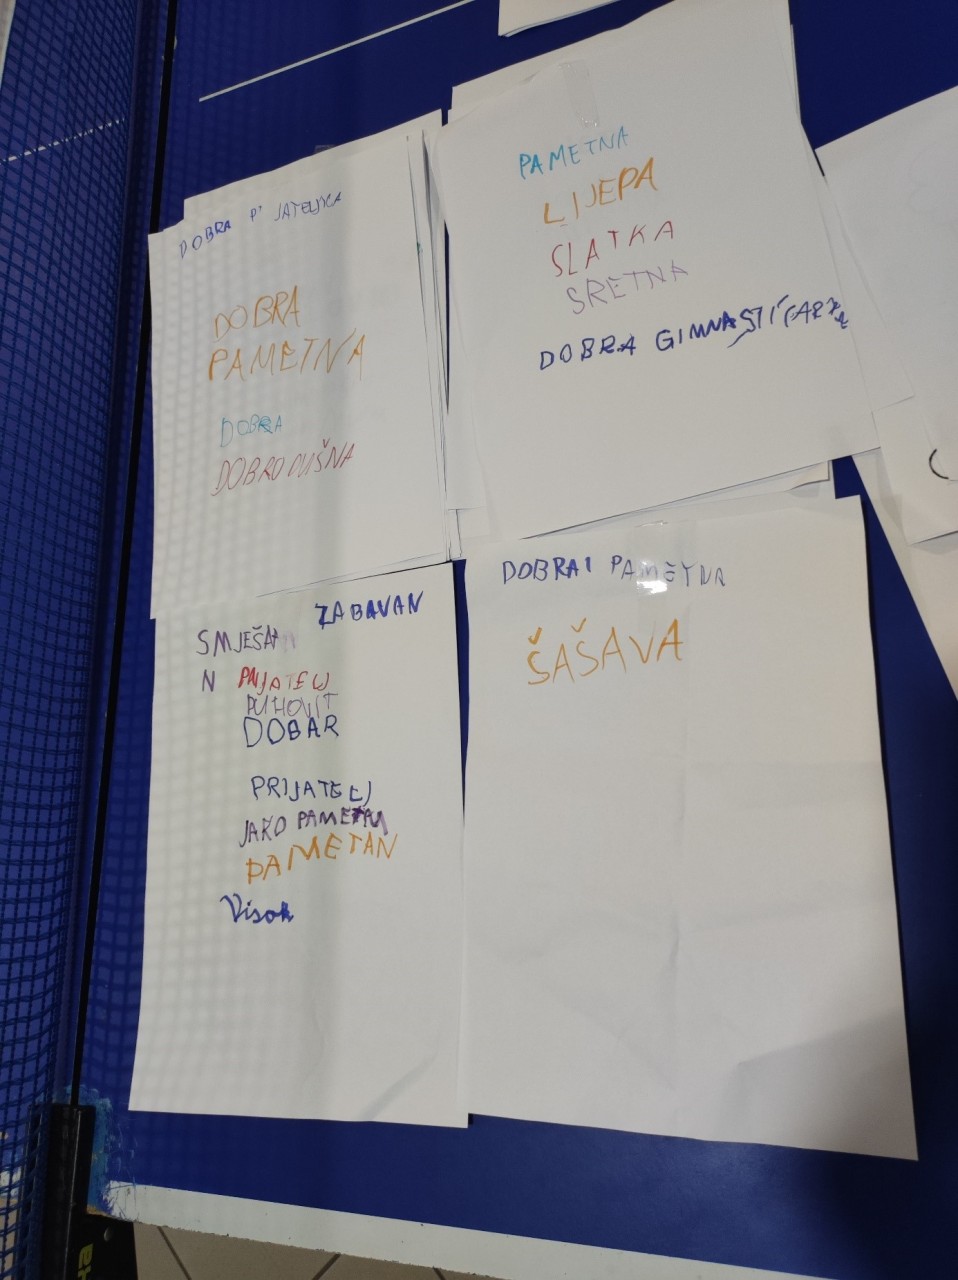 DOBRA P JATELJICA
DOBRA
PAMETNA
DOBRA
DOBRODUŠNA
PAMETNA
LIJEPA
SLATKA
SRETNA
DOBRA
ZABAVAN
SMJEŠAN
N PRIJATELJ
DUHOVIT
DOBAR
PRIJATELJ
JAKO PAMETAN
PAMETAN
Visok
DOBRA I PAMETNA
ŠAŠAVA